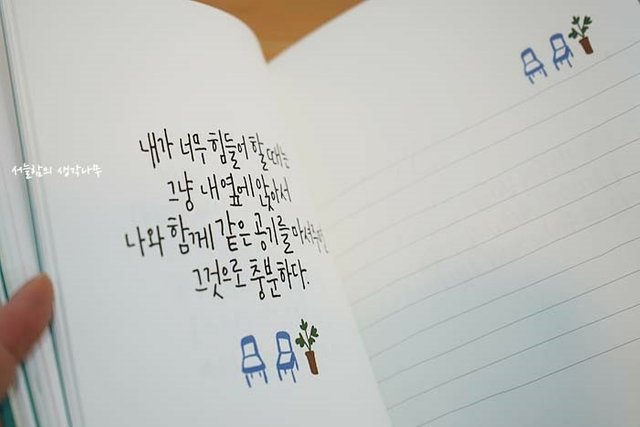 서늘함의 생각나무
내가 너무 힘들어 할 때는
그냥 내 옆에 앉아서
나와 함께 같은 공기를 마셔주면
그것으로 충분하다.